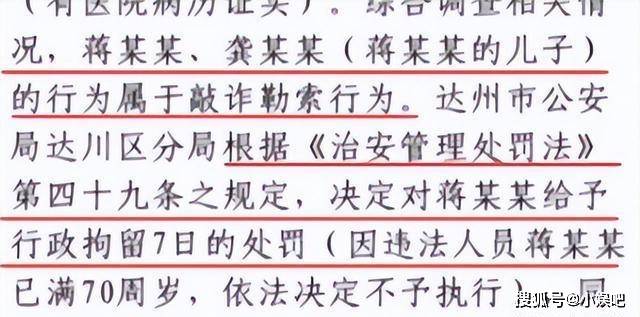 （有医院病历证实）。综合调查相关情
况，蒋某某、龚某某（蒋某某的儿子）
的行为属于敲诈勒索行为。达州市公安
局达川区分局根据《治安管理处罚法》
第四十九条之规定，决定对蒋某某给予
行政拘留7日的处罚（因违法人员蒋某某
已满70周岁，依法决定不予执行）。同
搜狐号@小娱吧